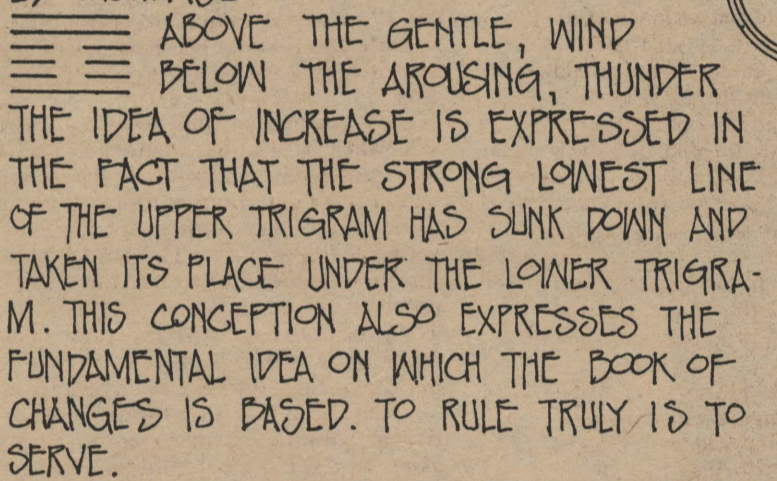 ABOVE THE GENTLE, WIND
BELOW THE AROUSING, THUNDER
THE IDEA OF INCREASE IS EXPRESSED IN
THE FACT THAT THE STRONG LOWEST LINE
OF THE UPPER TRIGRAM HAS SUNK DOWN AND
TAKEN ITS PLACE UNDER THE LOWER TRIGRA-
M. THIS CONCEPTION ALSO EXPRESSES THE
FUNDAMENTAL IDEA ON WHICH THE BOOK OF
CHANGES IS BASED. TO RULE TRULY IS TO
SERVE.